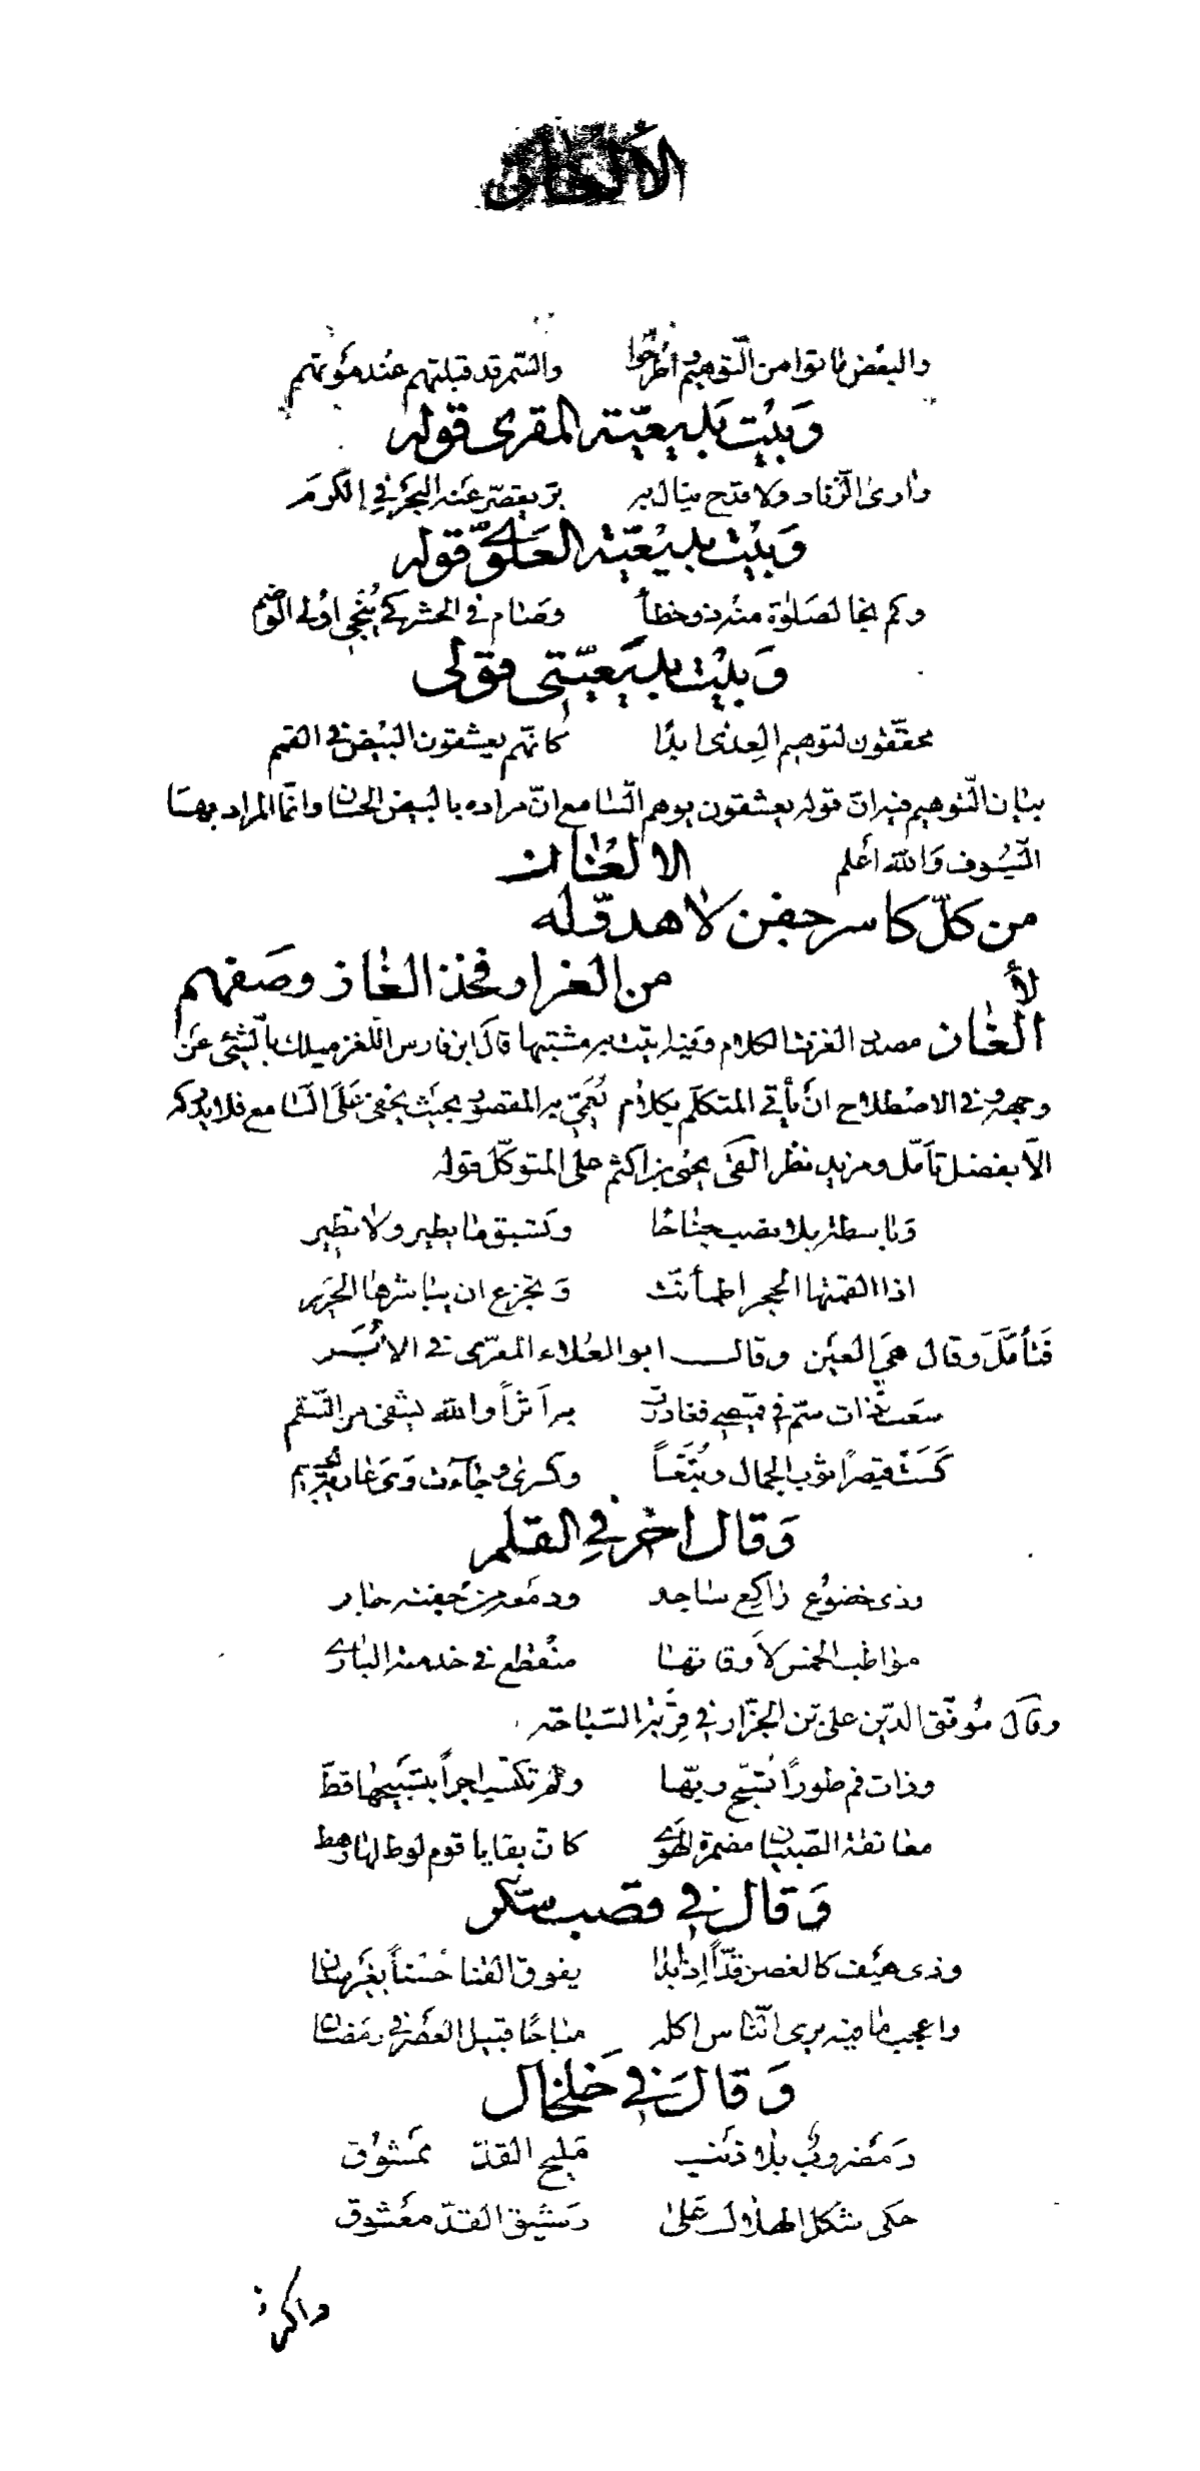 الألغاز
والبعض ماتوا من التوهيم واطرحوا والسمر قد قبلتهم عند موتهم
وبيت بديعية المقرى قوله
وارى الزناد ولا قدح ينال به بر يقصر عنه البحر في الكرم
وبيت بديعية العلوي قوله
وكم نجا لصلوة منه ذو خطأ وصام في الحشر كي ينجي اولى الوضم
وبيت بديعيتي قولى
محققون لتوهيم العدى ابدا كانهم يعشقون البيض في القمم
بيان التوهيم فيه ان قوله يعشقون يوهم السامع ان مراده بالبيض الحسان وانما المراد بها
السيوف والله أعلم الالغاز
من كل كاسر جفن لا هدو له
من الغرار فخذ الغاز وصفهم
لأ
الغاز مصدر الغزت الكلام وفيه اتيت به مشتبها قال ابن فارس اللغز ميلك بالشئ عن
وجهه وفي الاصطلاح ان يأتي المتكلم بكلام يعمي به المقصود بحيث يخفى على السامع فلا يدركه
الا بفضل تأمل ومزيد نظر القى يحيى بن اكثم على المتوكل قوله
وباسطة بلا نصب جناحا وتسبق ما يطير ولا تطير
اذا القمتها الحجر اطمأنت وتجزع ان يباشرها الحرير
فتأمل وقال هي العين وقال ابو العلاء المعرى في الابر
سعت ذات سم في قميصي فغادرت به اثراً والله يشفى من السقم
كست قيصراً ثوب الجمال وتبعاً وكسرى وجاءت وهي عارية الجسم
وقال اخر في القلم
وذى خضوع راكع ساجد ودمعه من جفنه جار
مواظب الخمس لاوقاتها منقطع في خدمة البارى
وقال موفق الدين على بن الجزار في قربة السباحة
وذات فم طوراً تسبح ربها ولم تكتسب اجراً بتسبيحها قط
معانقة الصبيان مضمرة الهوى كان بقايا قوم لوط لها رهط
وقال في قصب سكر
وذى هيف كالغصن قداً إذا بدا يفوق القنا حسناً بغير سنان
واعجب ما فيه يرى الناس اكله مباحا قبيل العصر في رمضان
وقال في خلخال
ومضروب بلا ذنب مليح القد ممشوق
حكى شكل الهلال على رشيق القد معشوق
واكثر